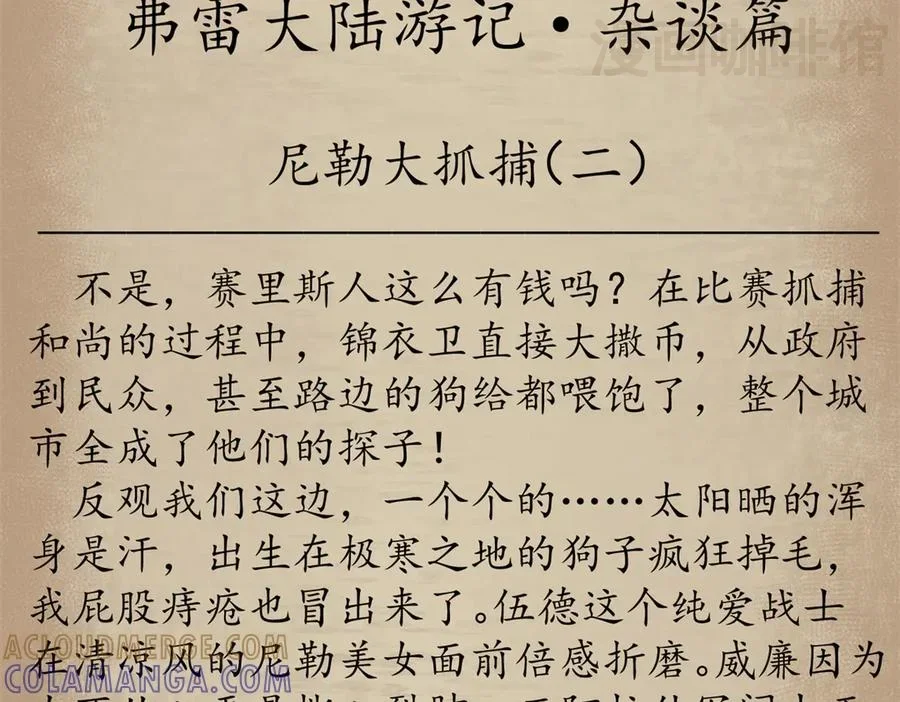 弗雷大陆游记·杂谈篇
漫画咖啡馆
尼勒大抓捕(二)
不是，赛里斯人这么有钱吗？在比赛抓捕
和尚的过程中，锦衣卫直接大撒币，从政府
到民众，甚至路边的狗给都喂饱了，整个城
市全成了他们的探子！
反观我们这边，一个个的……太阳晒的浑
身是汗，出生在极寒之地的狗子疯狂掉毛，
我屁股痔疮也冒出来了。伍德这个纯爱战士
在清凉风的尼勒美女面前倍感折磨。威廉因为
ACLOUDMERGE.COM
COLAMANGA.COM